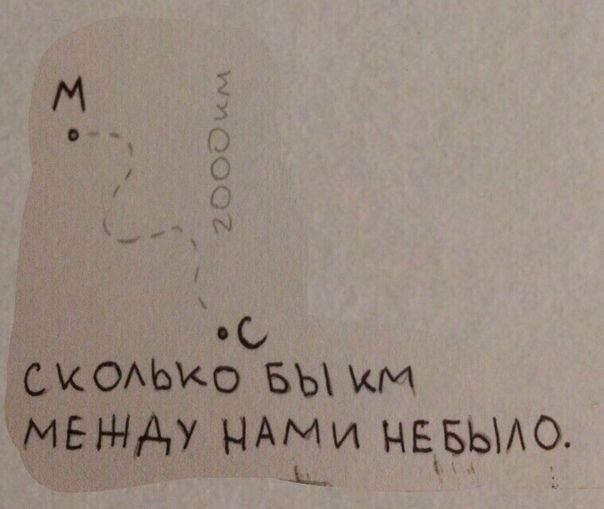 М
2000км
С
СКОЛЬКО БЫ КМ
МЕЖДУ НАМИ НЕБЫЛО.